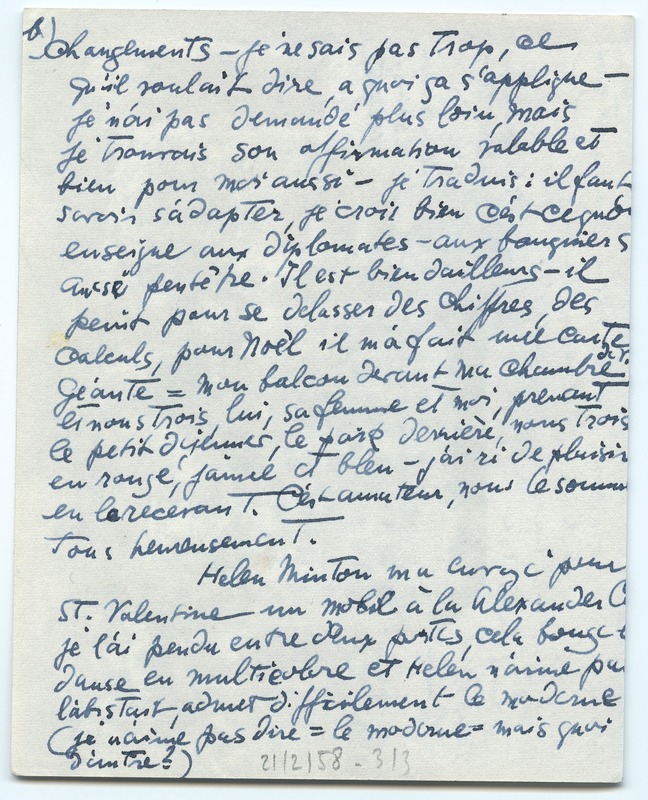 6)
changements – je ne sais pas trop, ce
qu'il voulait dire, a quoi ça s'applique –
je n'ai pas demandé plus loin, mais
je trouvais son affirmation valable et
bien pour moi aussi – je traduis : il faut
savoir s'adapter, je crois bien c'est ce qu'on
enseigne aux diplomates – aux banquiers
aussi peutêtre. Il est bien dailleurs – il
peint pour se delasser des chiffres, des
calculs, pour Noël il m'a fait une carte
géante = mon balcon devant ma chambre
et nous trois, lui, sa femme et moi, prenant
le petit déjeuner, le parc derrière, nous trois
en rouge, jaune et bleu – j'ai ri de plaisir
en le recevant. C'est amateur, nous le somm
tous heureusement.
Helen Minton m'a envoyé pour
St. Valentine un mobil à la Alexander C
je l'ai pendu entre deux portes, cela bouge
danse en multicolore et Helen n'aime pa
l'abstrait, admet difficilement le moderne
(je n'aime pas dire = le moderne = mais quoi
d'autre ?)
21/2/58 - 3/3